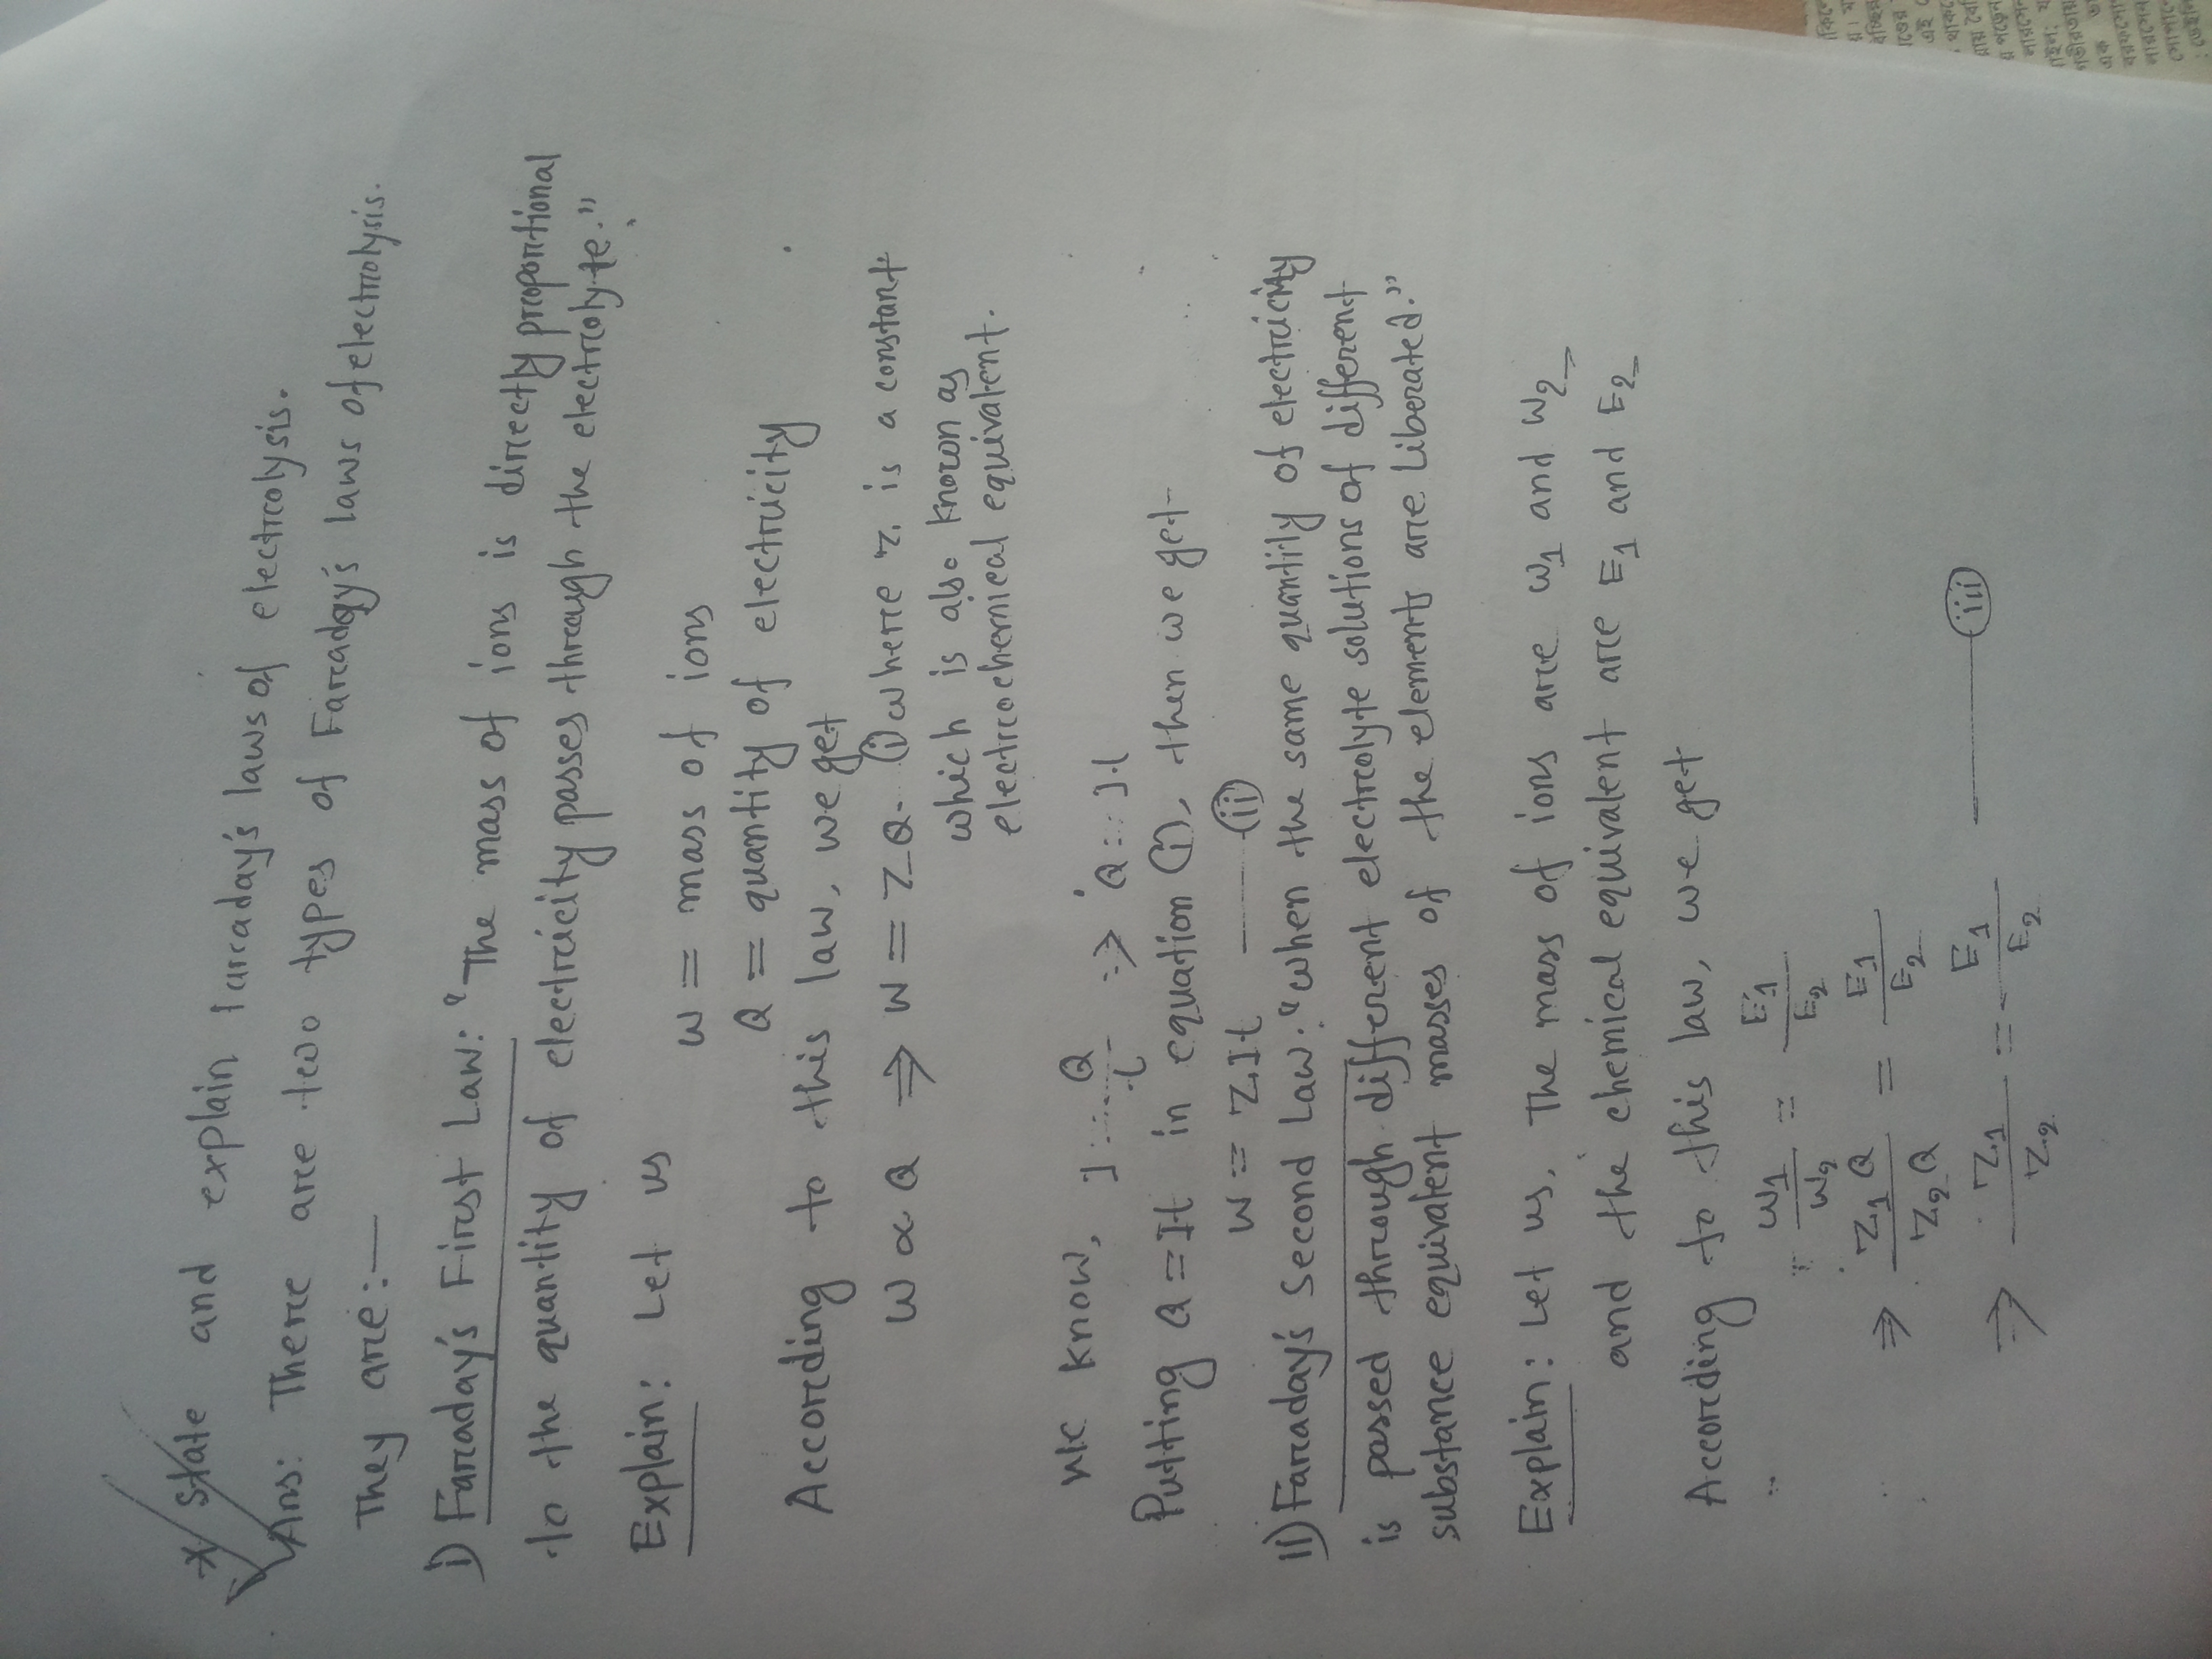 * State and explain Faraday's laws of electrolysis.
Ans: There are two types of Faraday's laws of electrolysis.
They are:—
i) Faraday's First Law: "The mass of ions is directly proportional
to the quantity of electricity passes through the electrolyte."
Explain: Let us
w = mass of ions
Q = quantity of electricity
According to this law, we get
w ∝ Q ⇒ w = ZQ - (i) where Z is a constant
which is also known as
electrochemical equivalent.
We know, I = Q/t ⇒ Q = It
Putting Q = It in equation (i), then we get-
w = ZIt —— (ii)
ii) Faraday's Second Law: "When the same quantity of electricity
is passed through different electrolyte solutions of different
substance equivalent masses of the elements are liberated."
Explain: Let us, The mass of ions are w₁ and w₂
and the chemical equivalent are E₁ and E₂
According to this law, we get
∴ w₁/w₂ = E₁/E₂
⇒ Z₁Q/Z₂Q = E₁/E₂
⇒ Z₁/Z₂ = E₁/E₂ —— (iii)